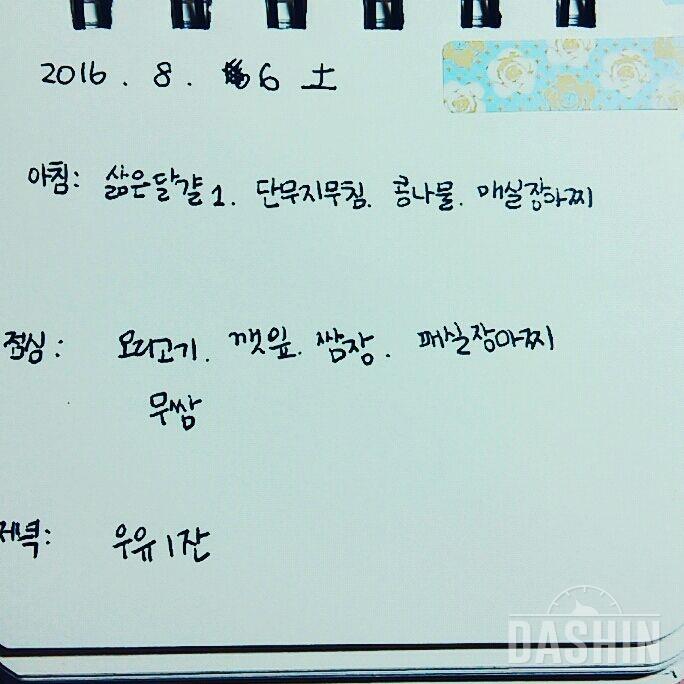 2016. 8. 6 土
아침: 삶은달걀1. 단무지무침. 콩나물. 매실장아찌
점심: 오리고기. 깻잎. 쌈장. 매실장아찌
무쌈
저녁: 우유1잔
DASHIN